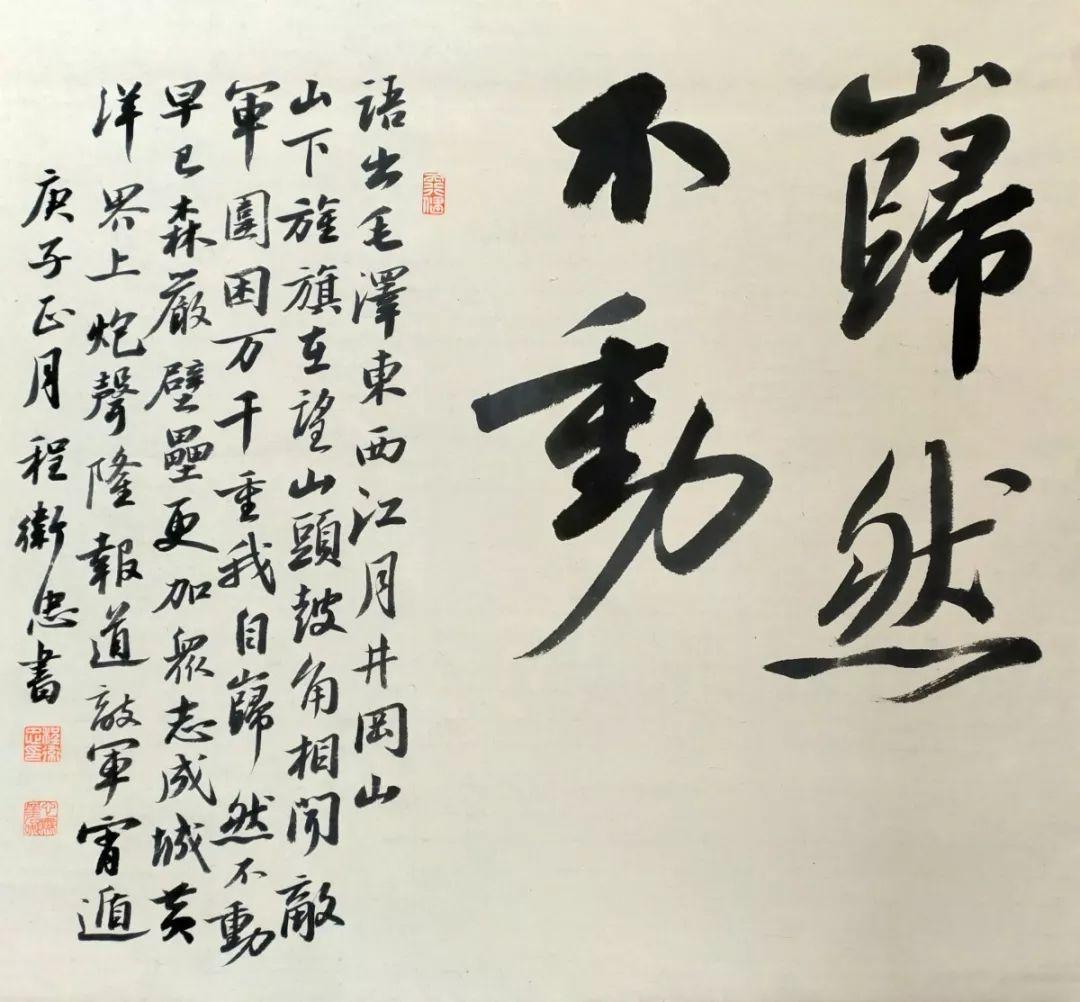 巋然
不動
語出毛澤東西江月井岡山
山下旌旗在望山頭鼓角相聞敵
軍圍困万千重我自巋然不動
早已森嚴壁壘更加衆志成城黄
洋界上炮聲隆報道敵軍宵遁
庚子正月程衛忠書